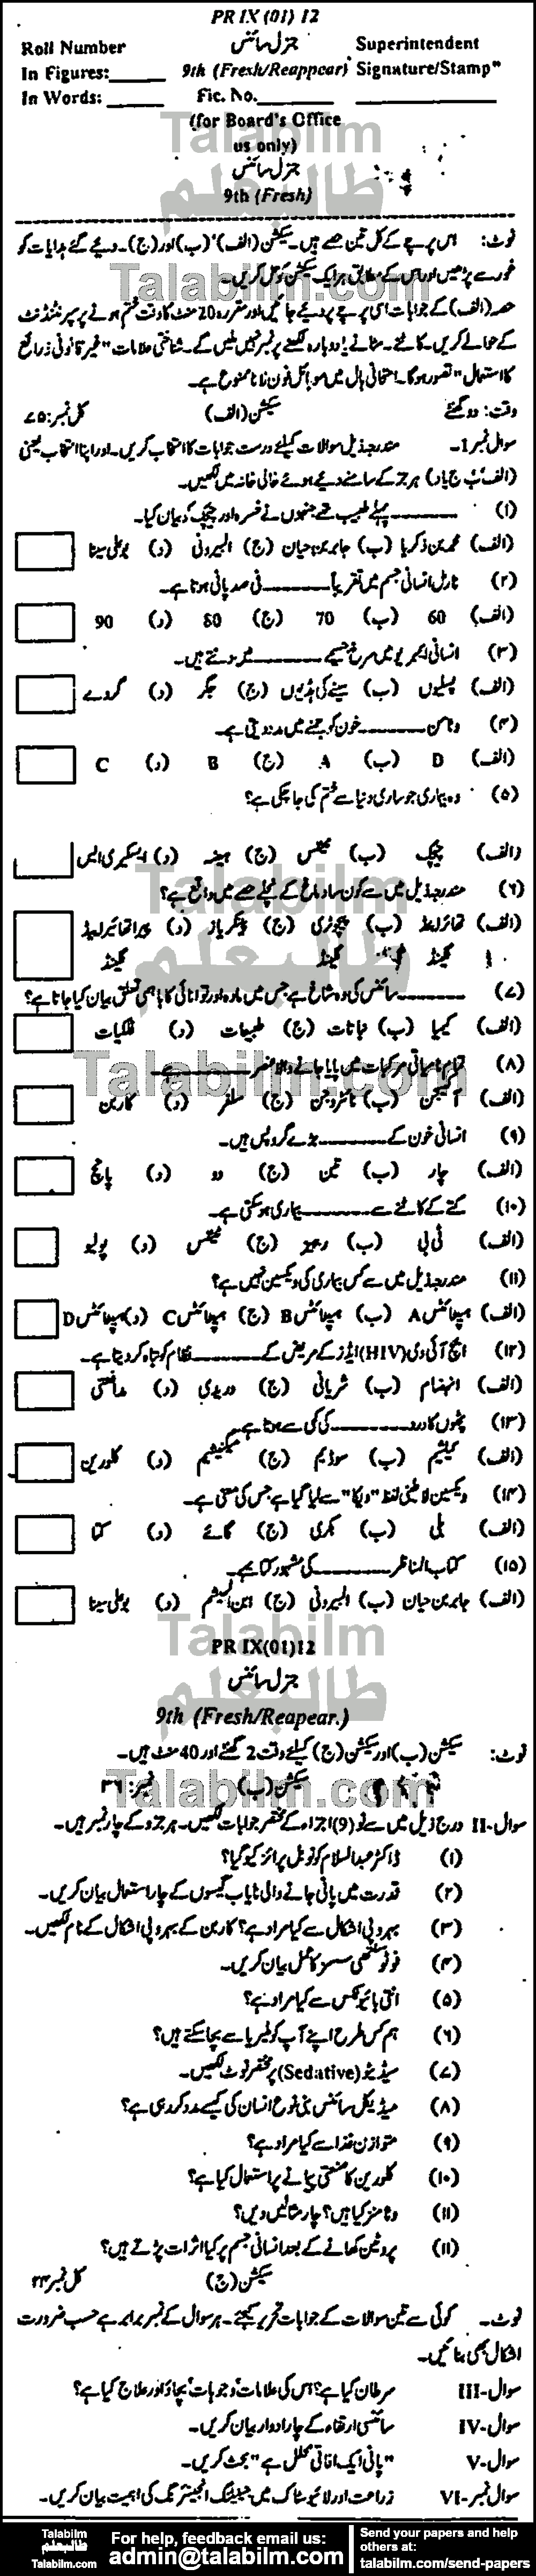 PR IX (01) 12
Roll Number جنرل سائنس Superintendent
In Figures:_____ 9th (Fresh/Reappear) Signature/Stamp"
In Words: _____ Fic. No._______ __________
(for Board's Office
us only)
Talabilm
جنرل سائنس
طالبعلم
9th (Fresh)
نوٹ: اس پرچے کے کل تین حصے ہیں۔ سیکشن (الف)، (ب) اور (ج)۔ دیئے گئے ہدایات کو
غور سے پڑھیں اور اس کے مطابق ہر ایک سیکشن کو حل کریں۔
Talabilm.com
حصہ (الف) کے جوابات اسی پرچے پر دیئے جائیں اور مقررہ 20 منٹ کا وقت ختم ہونے پر سپرنٹنڈنٹ
کے حوالے کریں۔ کاٹنے۔ مٹانے / دوبارہ لکھنے پر نمبر نہیں ملیں گے۔ شناختی علامات "غیر قانونی ذرائع
کا استعمال" تصور ہوگا۔ امتحانی ہال میں موبائل فون لانا ممنوع ہے۔
وقت: دو گھنٹے سیکشن (الف) کل نمبر: ۷۵
سوال نمبر 1۔ مندرجہ ذیل سوالات کیلئے درست جوابات کا انتخاب کریں۔ اور اپنا انتخاب یعنی
(الف، ب، ج یا د) ہر جز کے سامنے دیئے ہوئے خالی خانہ میں لکھیں۔
(۱) ________ پہلے طبیب تھے جنہوں نے خسرہ اور چیچک کو بیان کیا۔
(الف) محمد بن ذکریا (ب) جابر بن حیان (ج) البیرونی (د) بوعلی سینا
(۲) نارمل انسانی جسم میں تقریباً ________ فی صد پانی ہوتا ہے۔
(الف) 60 (ب) 70 (ج) 80 (د) 90
(۳) انسانی ایمبریو میں سرخ جسیمے ________ میں بنتے ہیں۔
(الف) پسلیوں (ب) سینے کی ہڈیوں (ج) جگر (د) گردے
(۴) وٹامن ________ خون کو جمنے میں مدد دیتی ہے۔
(الف) D (ب) A (ج) B (د) C
(۵) وہ بیماری جو ساری دنیا سے ختم کی جا چکی ہے؟
(الف) چیچک (ب) ٹیٹنس (ج) ہیضہ (د) ایسکیری ایسس
Talabilm
(۶) مندرجہ ذیل میں سے کون سا دماغ کے نچلے حصے میں واقع ہے؟
(الف) تھائرائیڈ (ب) پیچوٹری (ج) پنکریاز (د) پیراتھائیرائیڈ
گلینڈ گلینڈ گلینڈ
طالبعلم
(۷) ________ سائنس کی وہ شاخ ہے جس میں مادہ اور توانائی کا باہمی تعلق بیان کیا جاتا ہے؟
(الف) کیمیا (ب) نباتات (ج) طبیعات (د) فلکیات
(۸) تمام نامیاتی مرکبات میں پایا جانے والا عنصر ________ ہے۔
Talabilm.com
(الف) آکسیجن (ب) نائٹروجن (ج) سلفر (د) کاربن
(۹) انسانی خون کے ________ بڑے گروپس ہیں۔
(الف) چار (ب) تین (ج) دو (د) پانچ
(۱۰) کتے کے کاٹنے سے ________ بیماری ہو سکتی ہے۔
(الف) ٹی بی (ب) ریبیز (ج) ٹیٹنس (د) پولیو
(۱۱) مندرجہ ذیل میں سے کس بیماری کی ویکسین نہیں ہے؟
(الف) ہیپاٹائٹس A (ب) ہیپاٹائٹس B (ج) ہیپاٹائٹس C (د) ہیپاٹائٹس D
(۱۲) ایچ آئی وی (HIV) ایڈز کے مریض کے ________ نظام کو تباہ کر دیتا ہے۔
(الف) انہضام (ب) شریانی (ج) وریدی (د) مدافعتی
(۱۳) پٹھوں کا درد ________ کی کمی سے ہوتا ہے۔
(الف) کیلشیم (ب) سوڈیم (ج) میگنیشیم (د) کلورین
(۱۴) ویکسین لاطینی لفظ "ویکا" سے لیا گیا ہے جس کی معنی ہے۔
(الف) بلی (ب) بکری (ج) گائے (د) کتا
(۱۵) کتاب المناظر ________ کی مشہور کتاب ہے۔
(الف) جابر بن حیان (ب) البیرونی (ج) ابن الہیثم (د) بوعلی سینا
Talabilm
PR IX(01)12
جنرل سائنس
طالبعلم
9th (Fresh/Reapear.)
نوٹ: سیکشن (ب) اور سیکشن (ج) کیلئے وقت 2 گھنٹے اور 40 منٹ ہیں۔
سیکشن (ب) نمبر: ۳۶
Talabilm.com
سوال-II درج ذیل میں سے نو (9) اجزاء کے مختصر جوابات لکھیں۔ ہر جزو کے چار نمبر ہیں۔
(۱) ڈاکٹر عبدالسلام کو نوبل پرائز کیوں ملا؟
(۲) قدرت میں پائی جانے والی نایاب گیسوں کے چار استعمال بیان کریں۔
(۳) بہروپی اشکال سے کیا مراد ہے؟ کاربن کے بہروپی اشکال کے نام لکھیں۔
(۴) فوٹو سنتھی سسز کا عمل بیان کریں۔
(۵) انٹی بائیوٹکس سے کیا مراد ہے؟
(۶) ہم کس طرح اپنے آپ کو ملیریا سے بچا سکتے ہیں؟
(۷) سیڈیٹیو (Sedative) پر مختصر نوٹ لکھیں۔
(۸) میڈیکل سائنس بنی نوع انسان کی کیسے مدد کر رہی ہے؟
(۹) متوازن غذا سے کیا مراد ہے؟
(۱۰) کلورین کا صنعتی پیمانے پر استعمال کیا ہے؟
(۱۱) وٹامنز کیا ہیں؟ چار مثالیں دیں؟
(۱۱) پروٹین کھانے کے بعد انسانی جسم پر کیا اثرات پڑتے ہیں؟
سیکشن (ج) کل نمبر ۲۴
نوٹ۔ کوئی سے تین سوالات کے جوابات تحریر کیجئے۔ ہر سوال کے نمبر برابر ہے حسب ضرورت
اشکال بھی بنائیں۔
سوال-III سرطان کیا ہے؟ اس کی علامات، وجوہات، بچاؤ اور علاج کیا ہے؟
سوال-IV سائنسی ارتقاء کے چار ادوار بیان کریں۔
سوال-V "پانی ایک آفاقی محلل ہے" بحث کریں۔
سوال نمبر-VI زراعت اور لائیو سٹاک میں جینیٹک انجینئرنگ کی اہمیت بیان کریں۔
Talabilm
طالبعلم
Talabilm.com
For help, feedback email us:
admin@talabilm.com
Send your papers and help
others at:
talabilm.com/send-papers